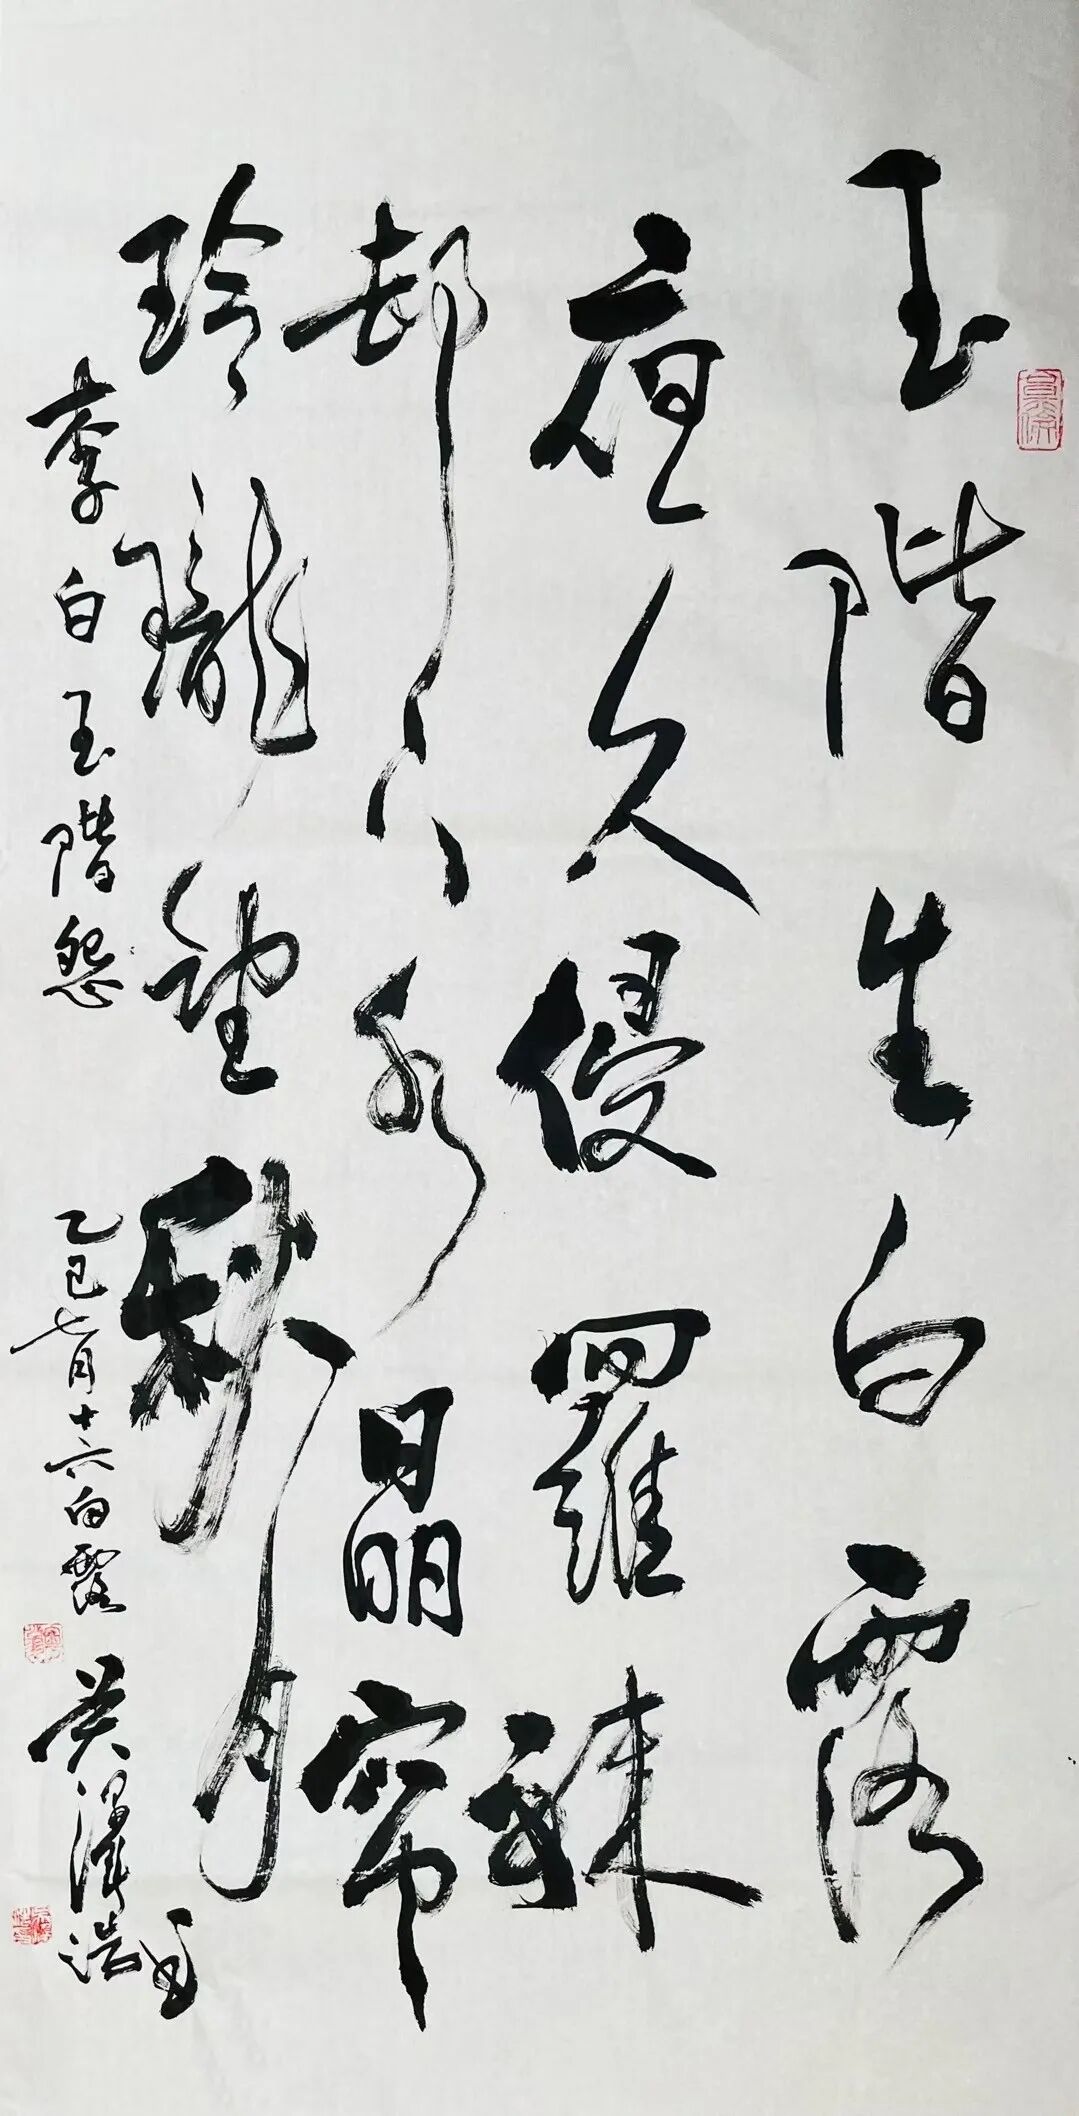 玉階生白露
夜久侵羅襪
却下水晶帘
玲瓏望秋月
李白玉階怨 乙巳七月十六白露 吳澤浩書